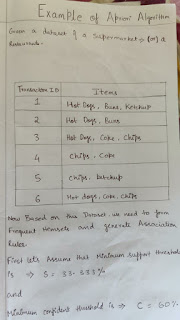 Example of Apriori Algorithm
Given a dataset of a Supermarket (or) a
Restaurant.
Transaction ID Items
1 Hot Dogs, Buns, Ketchup
2 Hot Dogs, Buns
3 Hot Dogs, Coke, Chips
4 Chips, Coke
5 Chips, ketchup
6 Hot dogs, Coke, Chips
Now Based on this Dataset we need to form
Frequent Itemsets and generate Association
Rules
First let's Assume that Minimum support threshold
is ⇒ S = 33.333%
and
Minimum confident threshold is ⇒ C = 60%